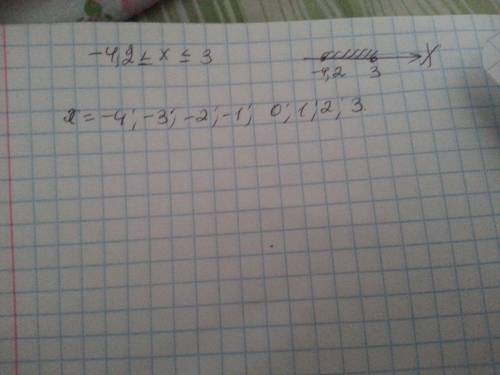 -4,2 ≤ x ≤ 3
X
-4,2 3
x = -4; -3; -2; -1; 0; 1; 2; 3.